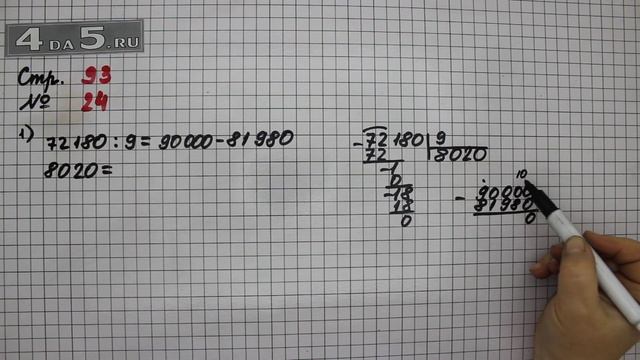 4DA5.RU
Стр. 93
№ 24
1) 72180 : 9 = 90000 - 81980
8020 =
- 72180 | 9
72 | 8020
- 1
0
- 18
18
0
10
- 90000
81980
0